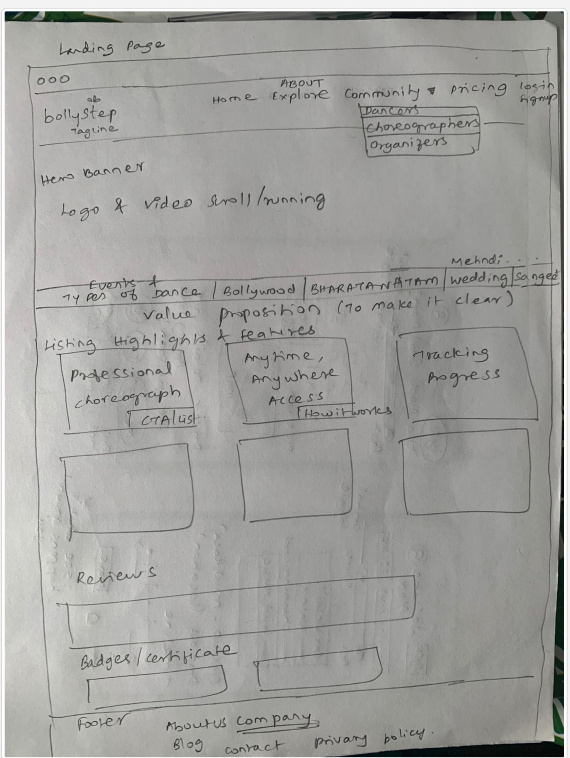 Landing Page
ABOUT
Home Explore Community & Pricing login
signup
bollystep
Tagline
Dancers
choreographers
Organizers
Hero Banner
Logo & video scroll/running
Mehndi...
Events &
Types of Dance / Bollywood / BHARATANATAM / wedding / sanged
value proposition (To make it clear)
Listing Highlights & features
Professional
choreograph
CTA/List
Anytime,
Anywhere
Access
How it works
Tracking
Progress
Reviews
Badges/certificate
Footer
About us Company
Blog contact privacy policy.